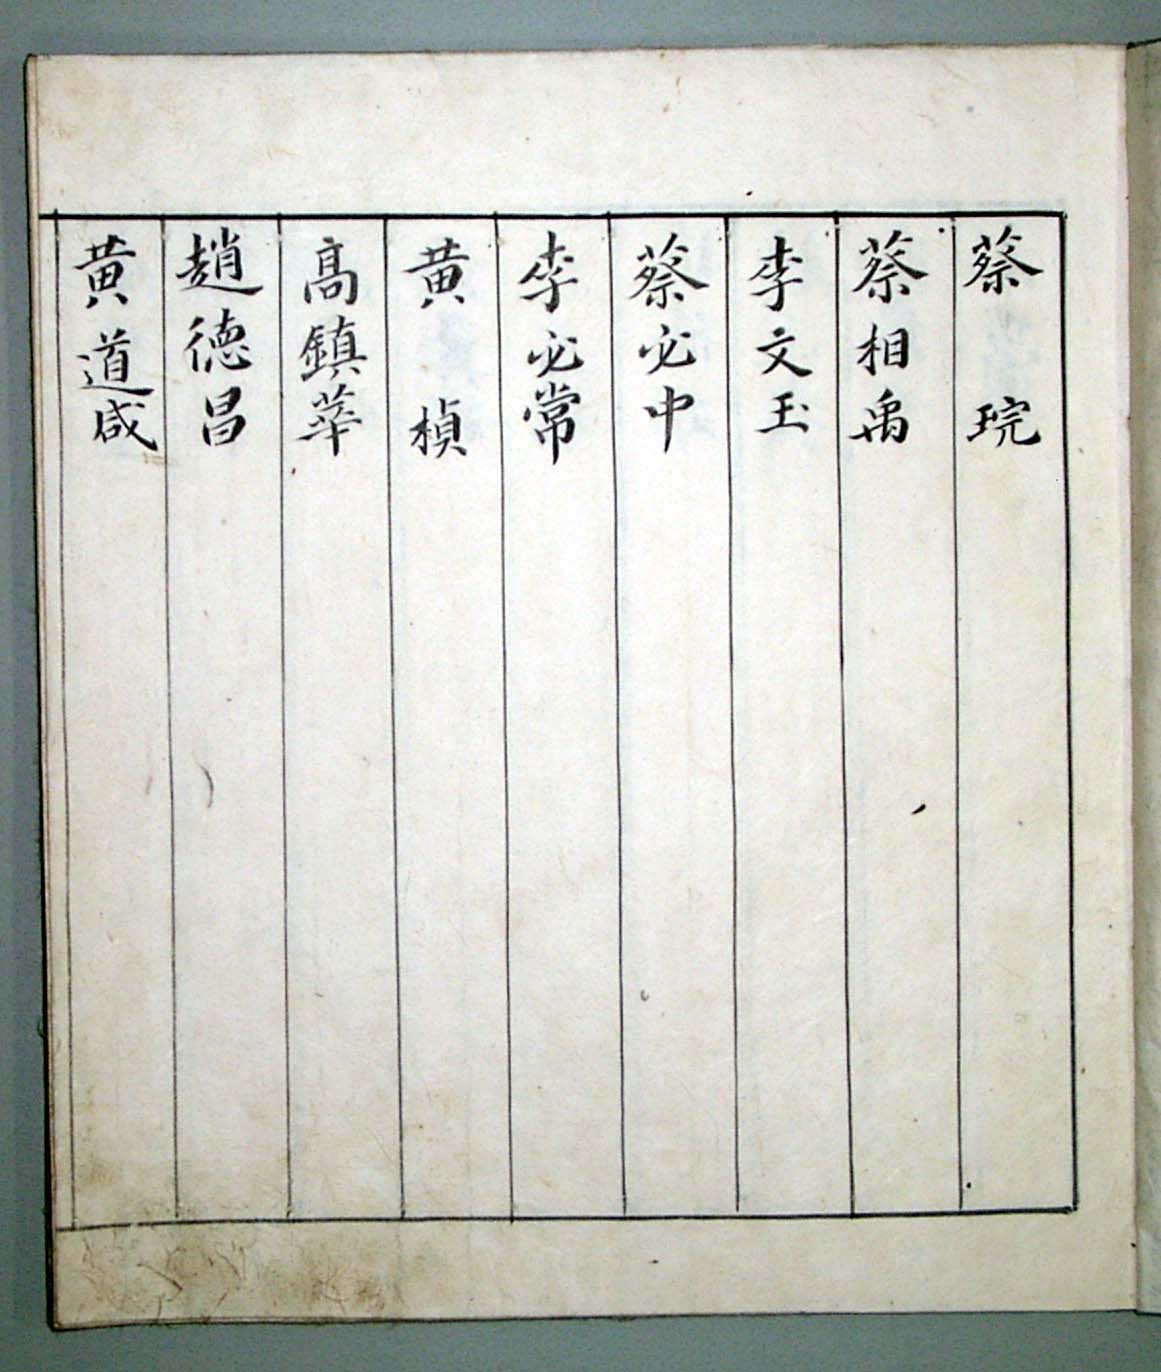 蔡 琓
蔡相禹
李文玉
蔡必中
李必常
黄 楨
高鎮華
趙德昌
黄道成